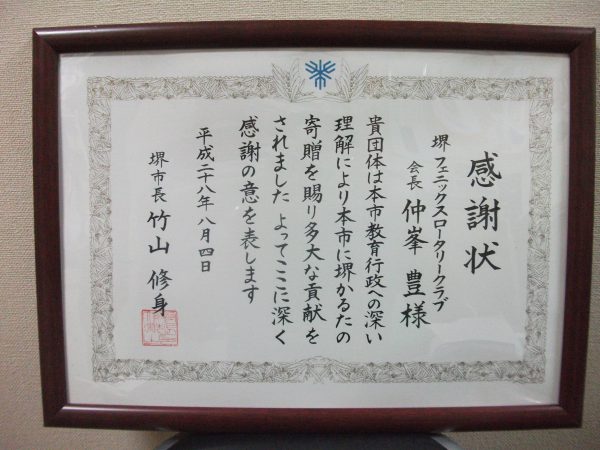 感謝状
堺フェニックスロータリークラブ
会長 仲峯 豊 様
貴団体は本市教育行政への深い
理解により本市に堺かるたの
寄贈を賜り多大な貢献を
されました よってここに深く
感謝の意を表します
平成二十八年八月四日
堺市長 竹山 修身